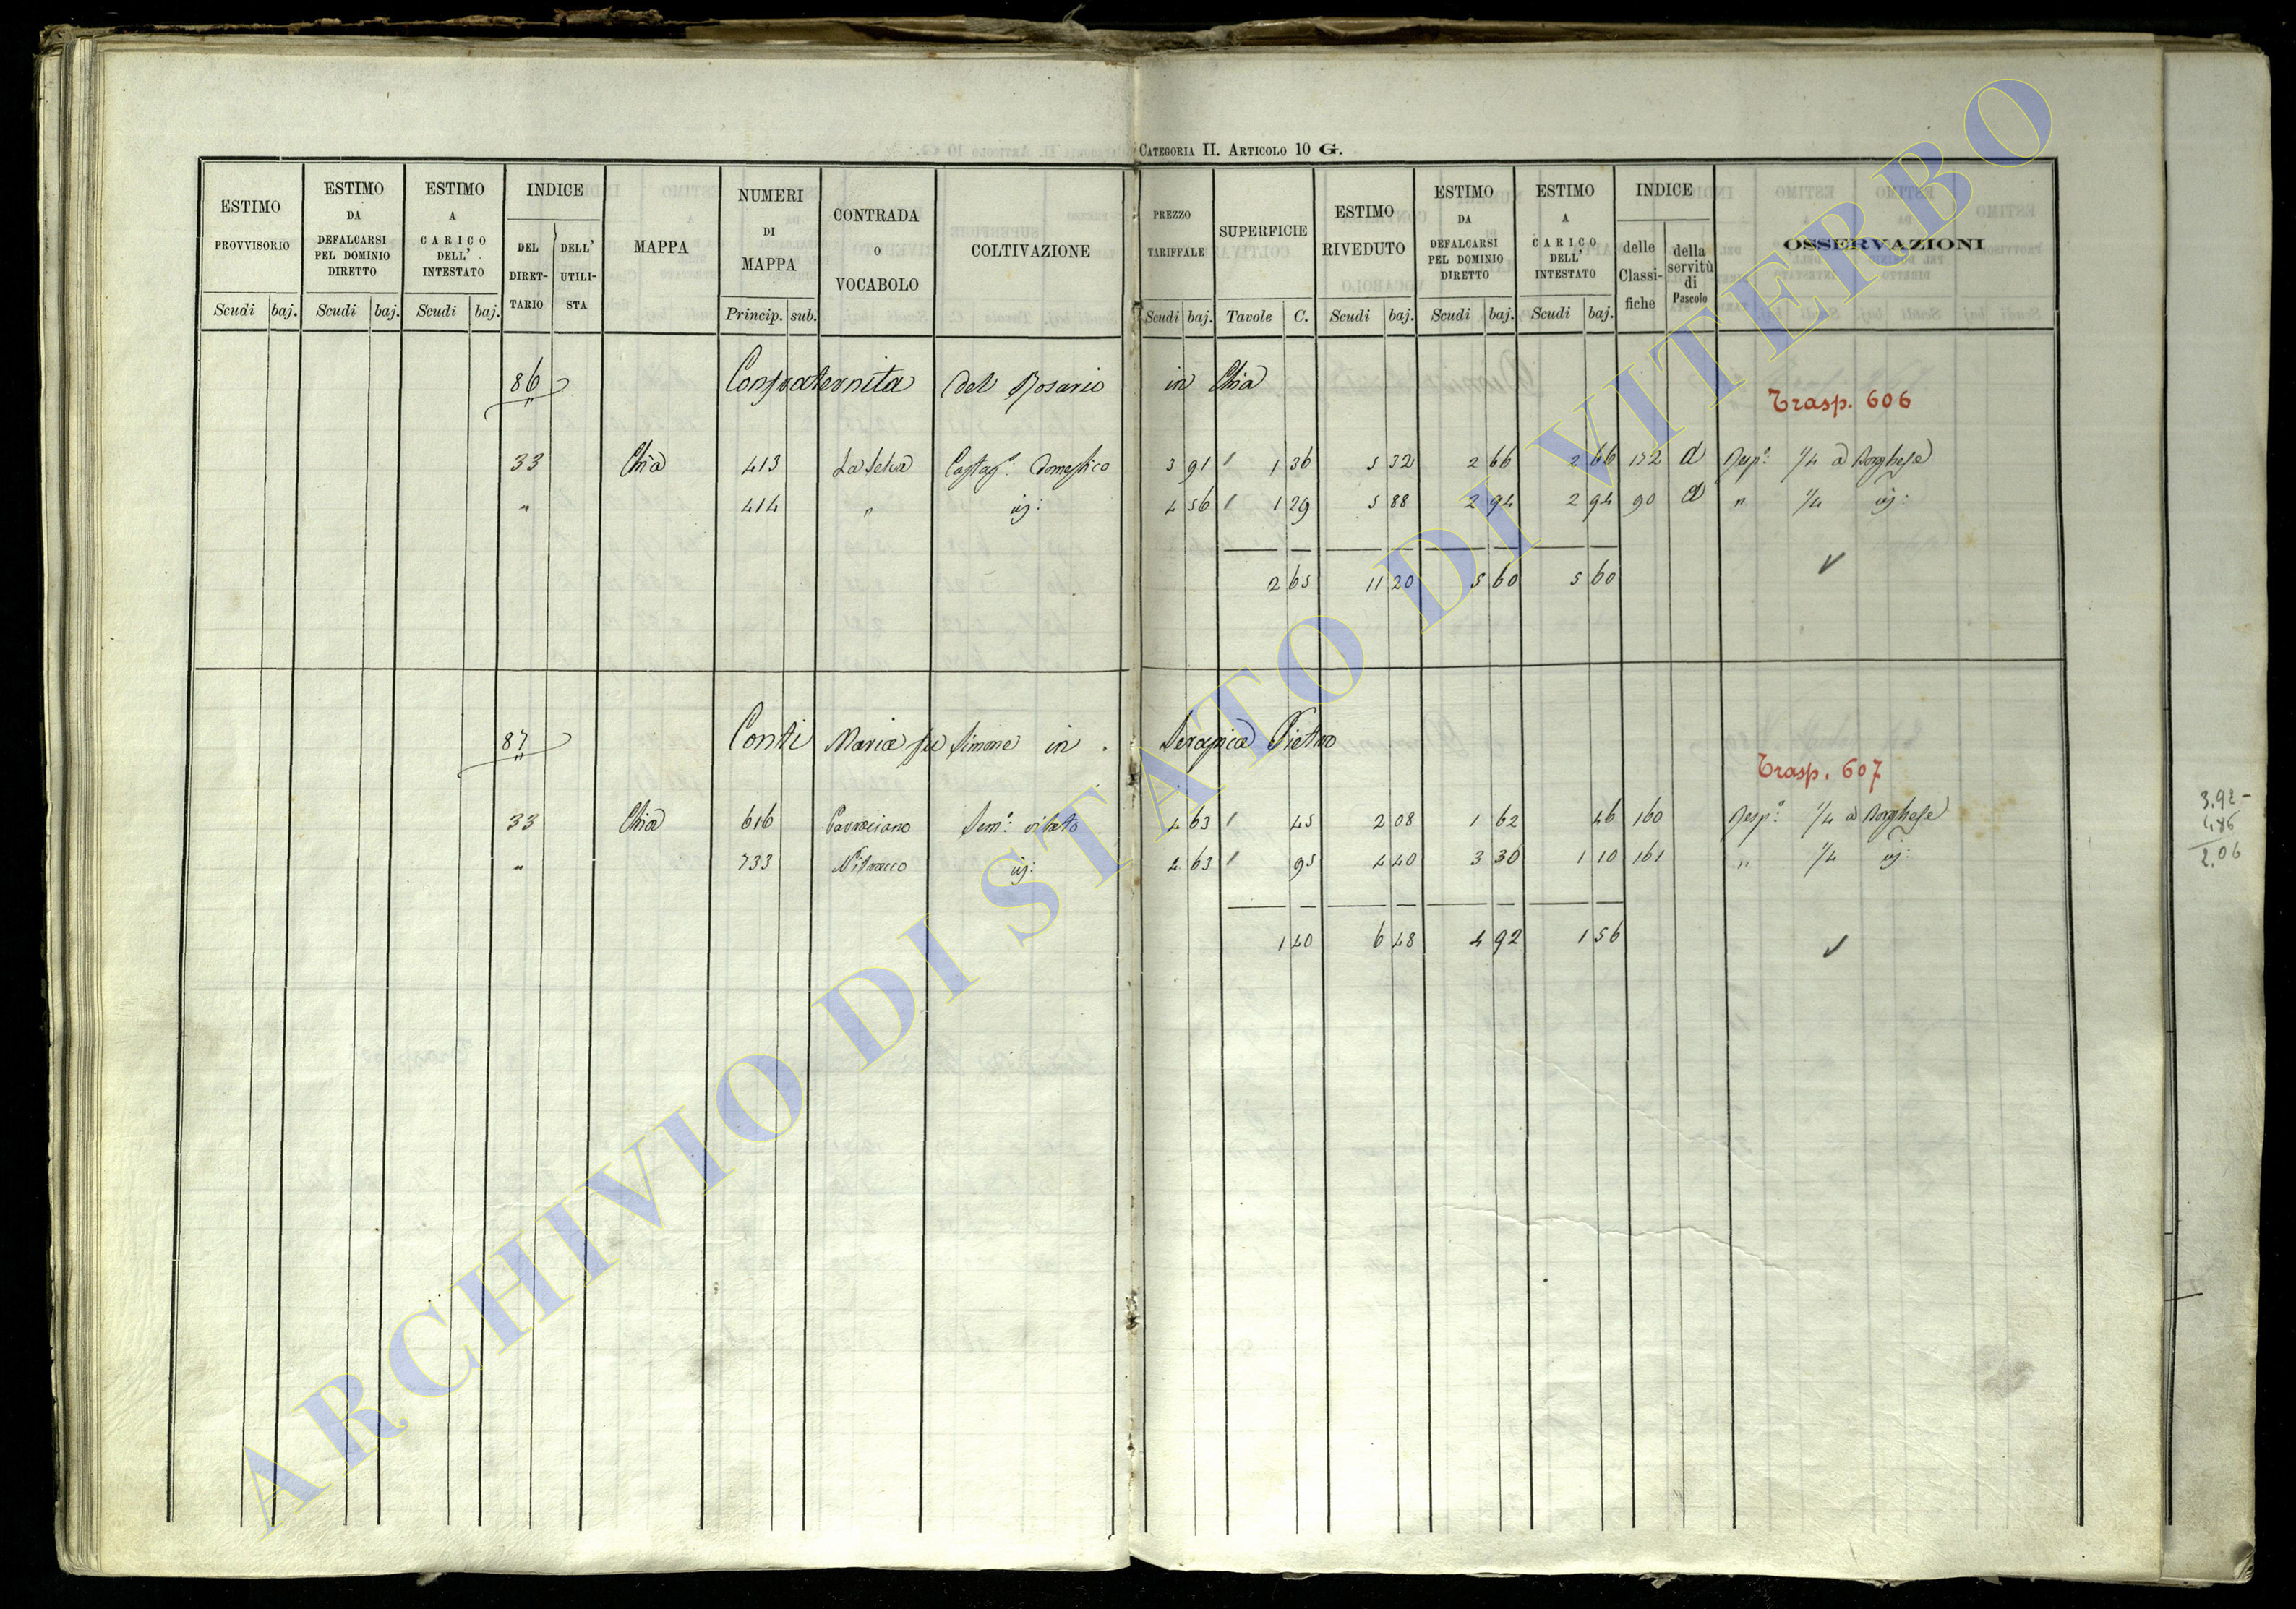 CATEGORIA II. ARTICOLO 10 G.
ESTIMO PROVVISORIO Scudi baj.
ESTIMO DA DEFALCARSI PEL DOMINIO DIRETTO Scudi baj.
ESTIMO A CARICO DELL' INTESTATO Scudi baj.
INDICE DEL DIRET-TARIO DELL' UTILI-STA
MAPPA
NUMERI DI MAPPA Princip. sub.
CONTRADA O VOCABOLO
COLTIVAZIONE
PREZZO TARIFFALE Scudi baj.
SUPERFICIE Tavole C.
ESTIMO RIVEDUTO Scudi baj.
ESTIMO DA DEFALCARSI PEL DOMINIO DIRETTO Scudi baj.
ESTIMO A CARICO DELL' INTESTATO Scudi baj.
INDICE delle Classi-fiche della servitù di Pascolo
OSSERVAZIONI
86 Confraternita del Rosario in Chia
Trasp. 606
33 Chia 413 La Selva Castag.º domestico 3 91 1 36 5 32 2 66 2 66 172 d Risp.ª 1/4 a Borghese
" 414 " id: 4 56 1 29 5 88 2 94 2 94 90 d " 1/4 id:
2 65 11 20 5 60 5 60
87 Conti Maria fu Simone in Serapica Pietro
Trasp. 607
33 Chia 616 Sem.º vitato 4 63 45 2 08 1 62 46 160 Risp.ª 1/4 a Borghese
" 733 id: 4 63 95 4 40 3 30 1 10 161 " 1/4 id:
1 40 6 48 4 92 1 56
3.92-
486
2.06
ARCHIVIO DI STATO DI VITERBO